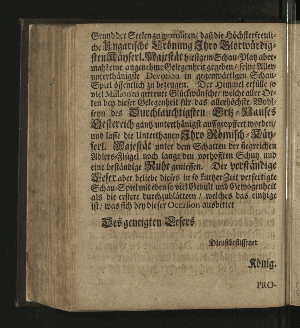 Grund der Seelen zu gratuliren/ daß die Höchsterfreuli-
che Ungarische Crönung Ihro Glorwürdig-
sten Käyserl. Majestät hiesigem Schau-Platz aber-
mahl eine angenehme Gelegenheit gegeben/ seine Aller-
unterthänigste Devotion in gegenwärtigen Schau-
Spiel öffentlich zu bezeigen. Der Himmel erfülle so
viel Millionen getreuer Glückwünsche/ welche aller Or-
ten bey dieser Gelegenheit für das allerhöchste Wohl-
seyn des Durchlauchtigsten Ertz-Hauses
Oesterreich gantz unterthänigst ausgegossen worden/
und lasse die Unterthanen Ihro Römisch-Käy-
serl. Majestät unter dem Schatten der siegreichen
Adlers-Flügel noch lange den verhofften Schutz und
eine beständige Ruhe geniessen. Der verständige
Leser aber beliebe dieses in so kurtzer Zeit verfertigte
Schau-Spiel mit eben so viel Gedult und Gewogenheit
als die erstere durchzublättern/ welches das einzige
ist/ was sich bey dieser Occasion ausbittet
Des geneigten Lesers
Dienstbeflissner
König.
PRO-